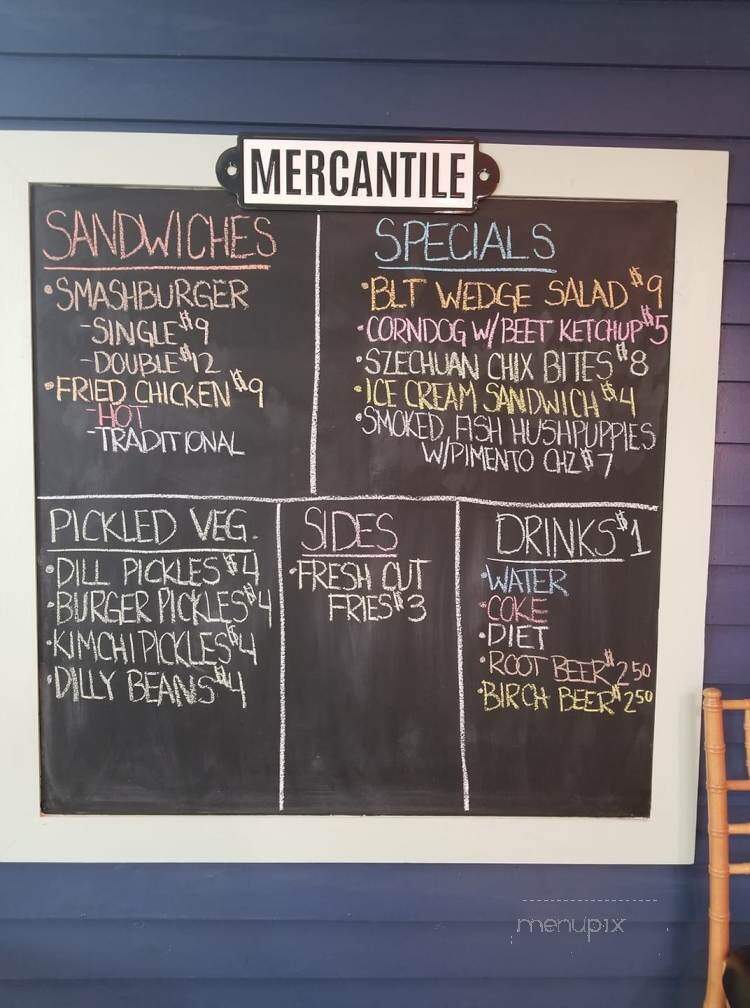 MERCANTILE
SANDWICHES
•SMASHBURGER
-SINGLE $9
-DOUBLE $12
•FRIED CHICKEN $9
-HOT
-TRADITIONAL
SPECIALS
•BLT WEDGE SALAD $9
•CORNDOG W/BEET KETCHUP $5
•SZECHUAN CHIX BITES $8
•ICE CREAM SANDWICH $4
•SMOKED FISH HUSHPUPPIES
W/PIMENTO CHZ $7
PICKLED VEG.
•DILL PICKLES $4
•BURGER PICKLES $4
•KIMCHI PICKLES $4
•DILLY BEANS $4
SIDES
•FRESH CUT
FRIES $3
DRINKS $1
•WATER
•COKE
•DIET
•ROOT BEER $2.50
•BIRCH BEER $2.50
menupix